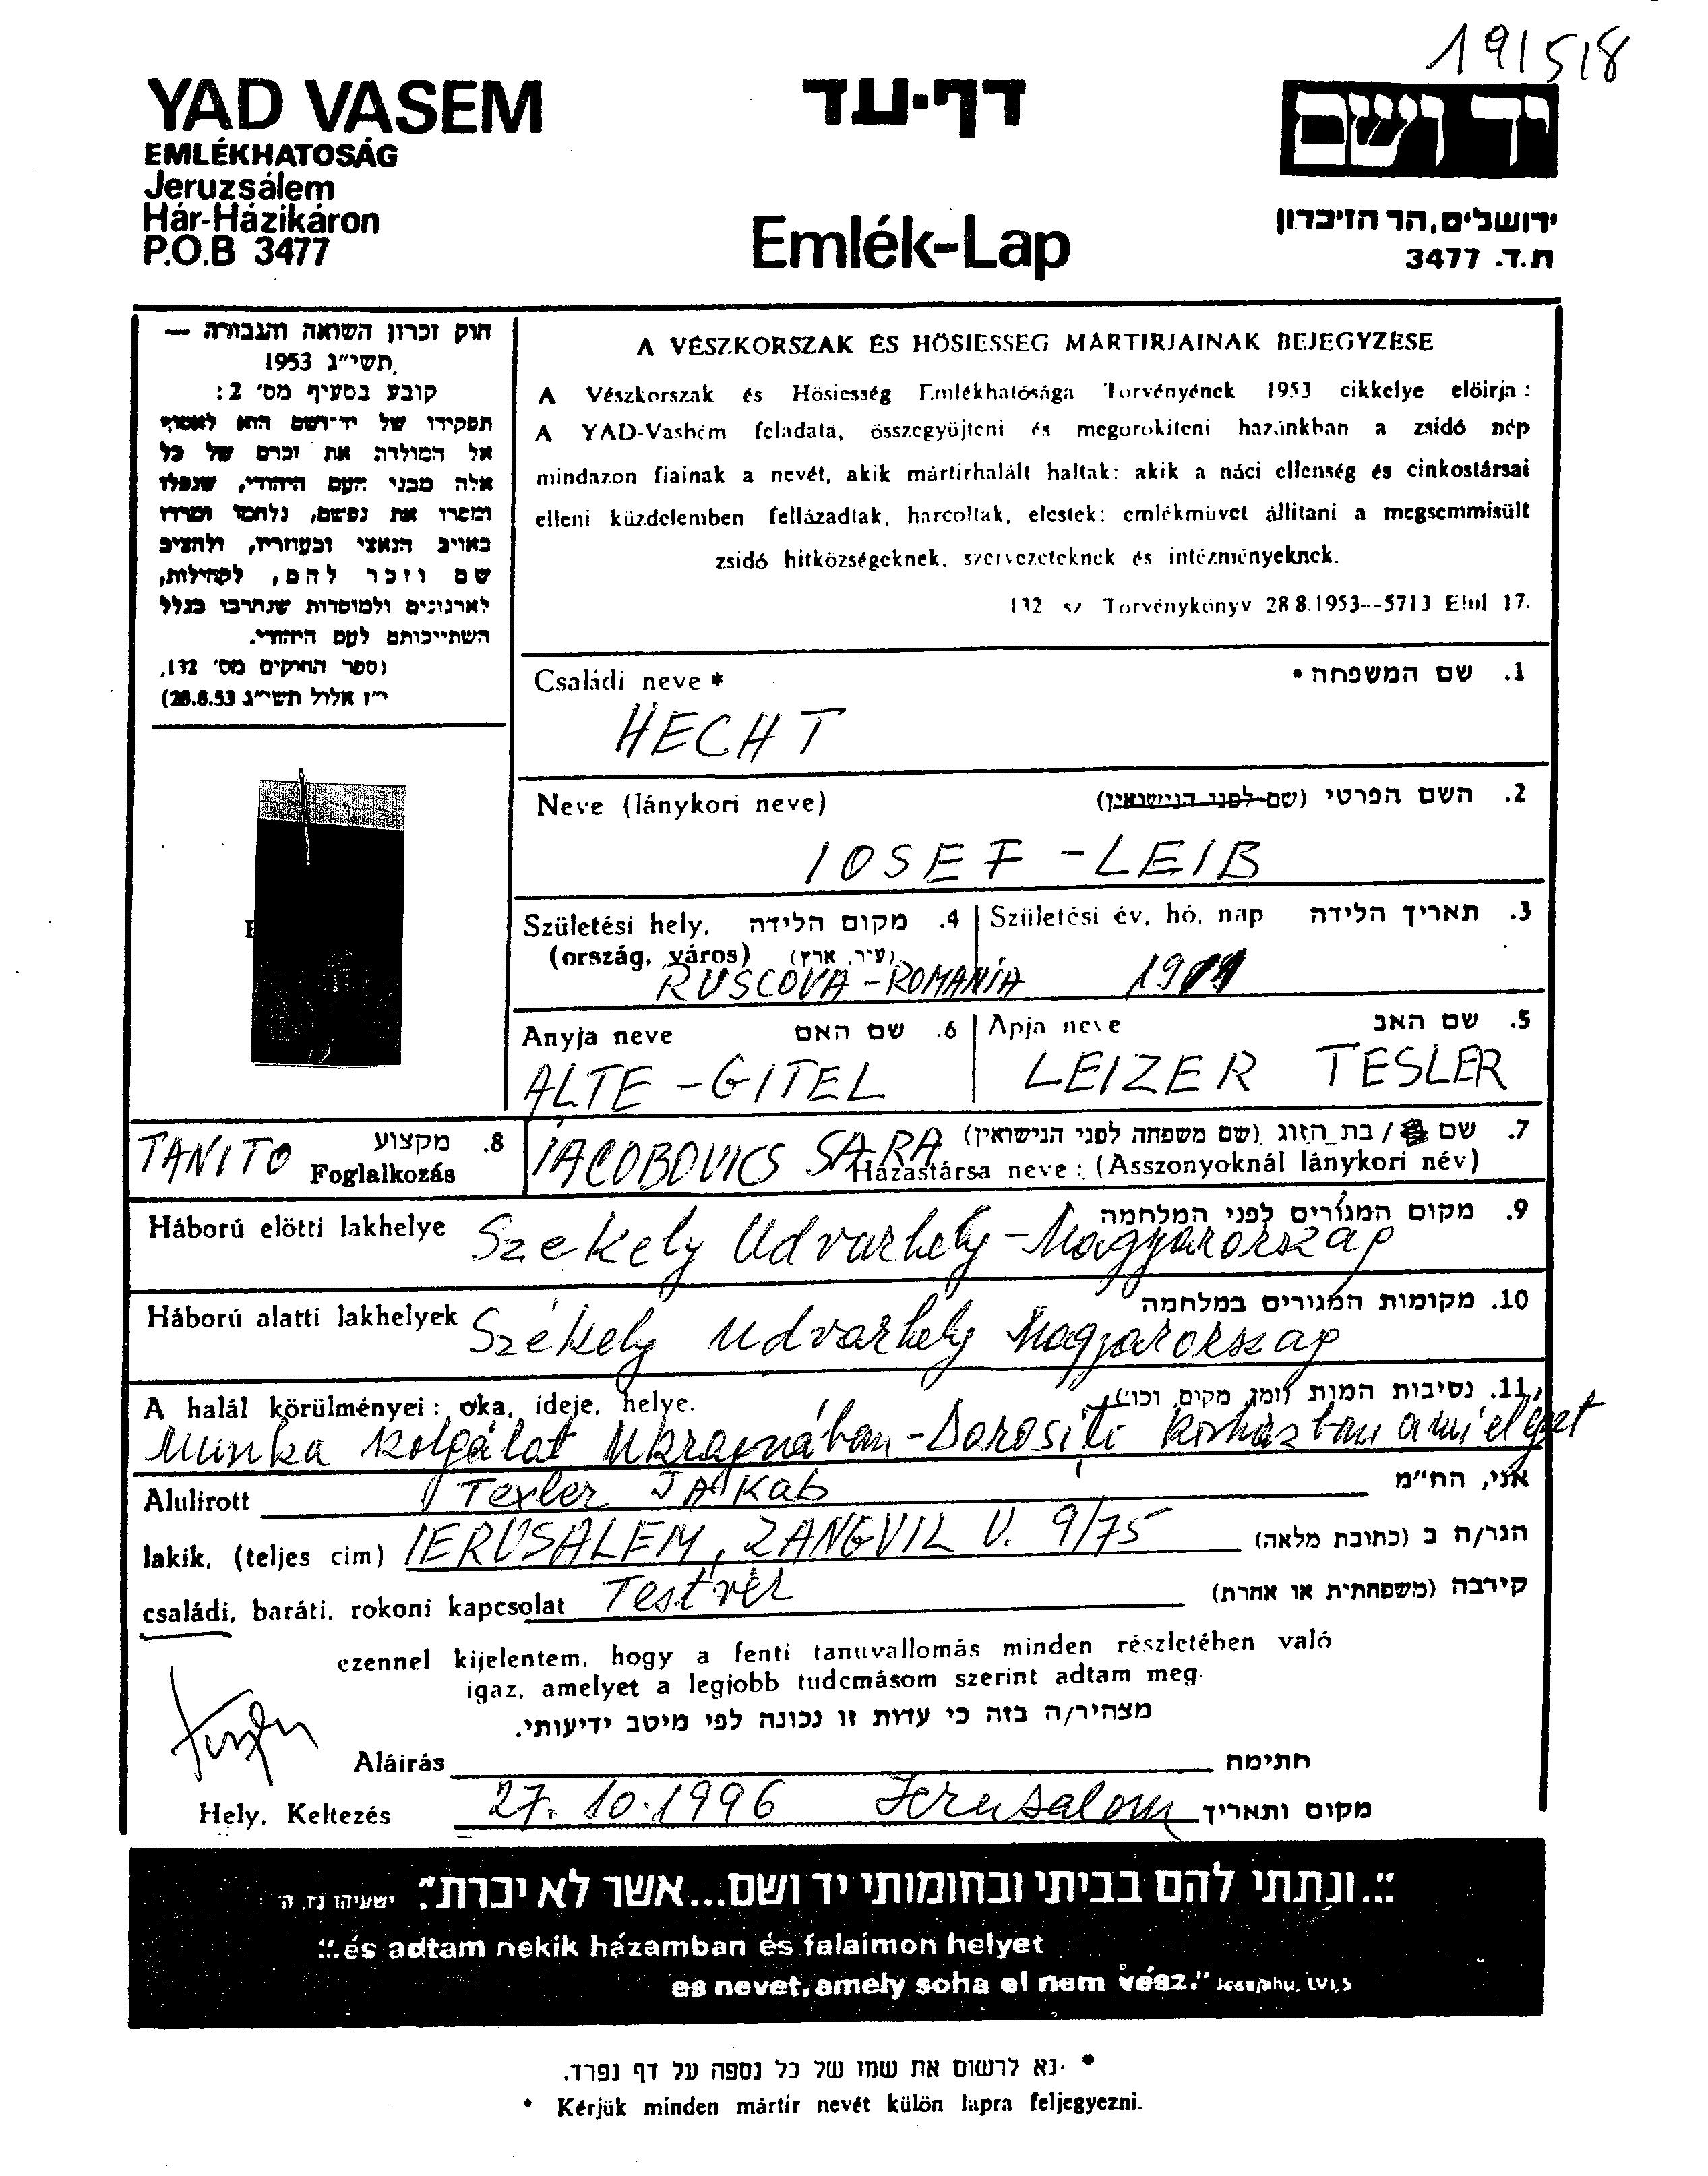 191518
YAD VASEM
EMLÉKHATOSÁG
Jeruzsálem
Hár-Házikáron
P.O.B 3477
דף-עד
Emlék-Lap
יד ושם
ירושלים, הר הזיכרון
ת.ד. 3477
חוק זכרון השואה והגבורה —
תשי"ג 1953
קובע בסעיף מס' 2:
תפקידו של יד-ושם הוא לאסוף
אל המולדת את זכרם של כל
אלה מבני העם היהודי, שנפלו
ומסרו את נפשם, נלחמו ומרדו
באויב הנאצי ובעוזריו, ולהציב
שם וזכר להם, לקהילות,
לארגונים ולמוסדות שנחרבו בגלל
השתייכותם לעם היהודי.
(ספר החוקים מס' 132,
י"ז אלול תשי"ג 28.8.53)
A VÉSZKORSZAK ÉS HÖSIESSEG MARTIRJAINAK BEJEGYZÉSE
A Vészkorszak és Hösiesség Emlékhatósága Torvényének 1953 cikkelye elöirja :
A YAD-Vashem feladata, összegyüjteni és megorokiteni hazánkban a zsidó nép
mindazon fiainak a nevét, akik mártirhalált haltak: akik a náci ellenség és cinkostársai
elleni küzdelemben fellázadtak, harcoltak, elestek: emlékmüvet állitani a megsemmisült
zsidó hitközségeknek, szervezeteknek és intézményeknek.
132 sz Torvénykönyv 28 8.1953--5713 Elul 17.
Családi neve * 1. שם המשפחה *
HECHT
Neve (lánykori neve) 2. השם הפרטי (שם לפני הנישואין)
IOSEF - LEIB
Születési hely, 4. מקום הלידה
(ország, város) (עיר, ארץ)
RUSCOVA - ROMANIA
Születési év, hó, nap 3. תאריך הלידה
Anyja neve 6. שם האם
ALTE - GITEL
Apja neve 5. שם האב
LEIZER TESLER
TANITO 8. מקצוע
Foglalkozás
7. שם / בת הזוג (שם משפחה לפני הנישואין)
IACOBOVICS SARA Házastársa neve : (Asszonyoknál lánykori név)
Háború elötti lakhelye 9. מקום המגורים לפני המלחמה
Szekely Udvarhely - Magyarorszag
Háború alatti lakhelyek 10. מקומות המגורים במלחמה
Székely Udvarhely Magyarorszag
A halál körülményei : oka, ideje, helye. 11. נסיבות המות (זמן, מקום, וכו')
Munka szolgálat Ukrajnában - Dorositi korházban ami elégett
Alulirott Texler JAKab אני, הח"מ
lakik, (teljes cim) IERUSALEM, ZANGVIL U. 9/75 הגר/ה ב (כתובת מלאה)
családi, baráti, rokoni kapcsolat Testvér קירבה (משפחתית או אחרת)
ezennel kijelentem, hogy a fenti tanuvallomás minden részletében való
igaz, amelyet a legjobb tudcmásom szerint adtam meg.
מצהיר/ה בזה כי עדות זו נכונה לפי מיטב ידיעותי.
Aláirás חתימה
Hely, Keltezés 27. 10. 1996 Jerusalem מקום ותאריך
"...ונתתי להם בביתי ובחומותי יד ושם...אשר לא יכרת" ישעיהו נו, ה
"..és adtam nekik házamban és falaimon helyet
es nevet, amely soha el nem vész." Jesajahu, LVI,5
* נא לרשום את שמו של כל נספה על דף נפרד.
* Kérjük minden mártir nevét külön lapra feljegyezni.